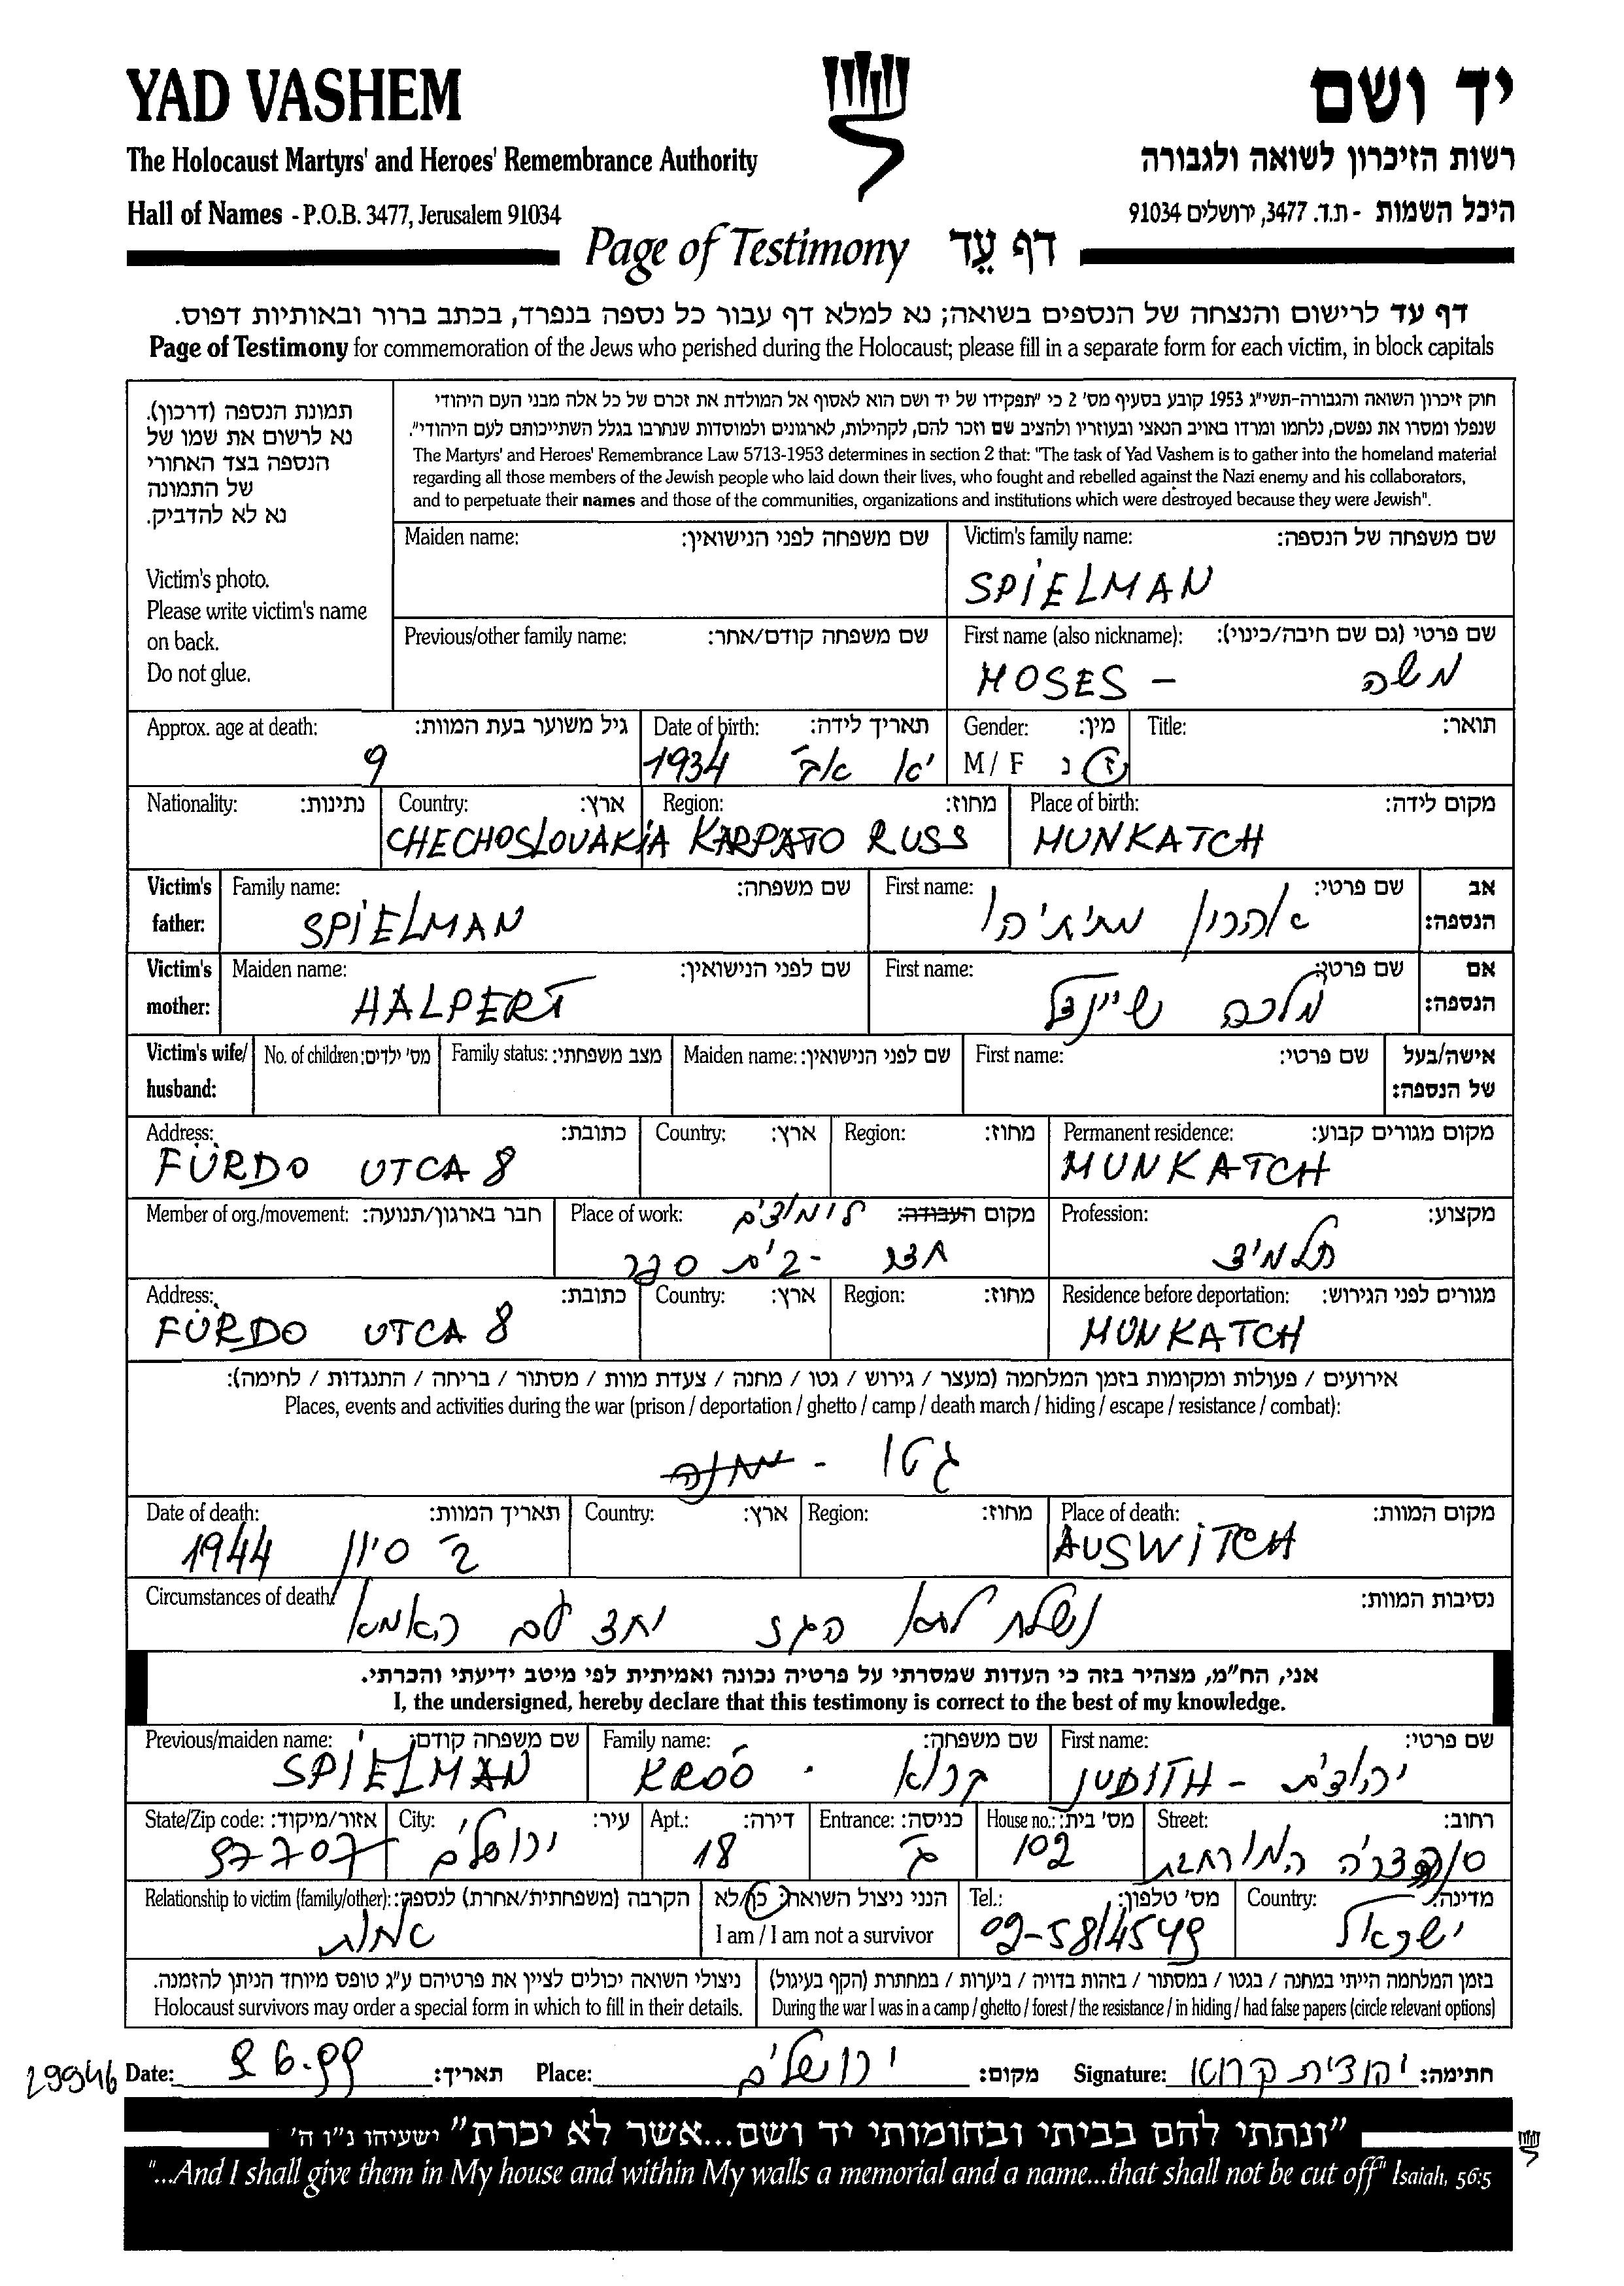 YAD VASHEM
יד ושם
The Holocaust Martyrs' and Heroes' Remembrance Authority
רשות הזיכרון לשואה ולגבורה
Hall of Names - P.O.B. 3477, Jerusalem 91034
היכל השמות - ת.ד. 3477, ירושלים 91034
Page of Testimony דף עֵד
דף עד לרישום והנצחה של הנספים בשואה; נא למלא דף עבור כל נספה בנפרד, בכתב ברור ובאותיות דפוס.
Page of Testimony for commemoration of the Jews who perished during the Holocaust; please fill in a separate form for each victim, in block capitals
תמונת הנספה (דרכון).
נא לרשום את שמו של
הנספה בצד האחורי
של התמונה
נא לא להדביק.
Victim's photo.
Please write victim's name
on back.
Do not glue.
חוק זיכרון השואה והגבורה-תשי"ג 1953 קובע בסעיף מס' 2 כי "תפקידו של יד ושם הוא לאסוף אל המולדת את זכרם של כל אלה מבני העם היהודי
שנפלו ומסרו את נפשם, נלחמו ומרדו באויב הנאצי ובעוזריו ולהציב שם וזכר להם, לקהילות, לארגונים ולמוסדות שנחרבו בגלל השתייכותם לעם היהודי".
The Martyrs' and Heroes' Remembrance Law 5713-1953 determines in section 2 that: "The task of Yad Vashem is to gather into the homeland material
regarding all those members of the Jewish people who laid down their lives, who fought and rebelled against the Nazi enemy and his collaborators,
and to perpetuate their names and those of the communities, organizations and institutions which were destroyed because they were Jewish".
Maiden name: שם משפחה לפני הנישואין:
Victim's family name: שם משפחה של הנספה:
SPIELMAN
Previous/other family name: שם משפחה קודם/אחר:
First name (also nickname): שם פרטי (גם שם חיבה/כינוי):
MOSES - משה
Approx. age at death: גיל משוער בעת המוות:
9
Date of birth: תאריך לידה:
1934 יא אב
Gender: מין:
M / F ז נ
Title: תואר:
Nationality: נתינות:
Country: ארץ:
CHECHOSLOVAKIA
Region: מחוז:
KARPATO RUSS
Place of birth: מקום לידה:
MUNKATCH
Victim's father: Family name: שם משפחה:
SPIELMAN
First name: שם פרטי:
אהרון מתתיהו
אב הנספה:
Victim's mother: Maiden name: שם לפני הנישואין:
HALPERT
First name: שם פרטי:
מלכה שיינדל
אם הנספה:
Victim's wife/ husband:
No. of children: מס' ילדים:
Family status: מצב משפחתי:
Maiden name: שם לפני הנישואין:
First name: שם פרטי:
אישה/בעל של הנספה:
Address: כתובת:
FÜRDO UTCA 8
Country: ארץ:
Region: מחוז:
Permanent residence: מקום מגורים קבוע:
MUNKATCH
Member of org./movement: חבר בארגון/תנועה:
Place of work: מקום העבודה: לימודים
חדר - בית ספר
Profession: מקצוע:
תלמיד
Address: כתובת:
FÜRDO UTCA 8
Country: ארץ:
Region: מחוז:
Residence before deportation: מגורים לפני הגירוש:
MUNKATCH
אירועים / פעולות ומקומות בזמן המלחמה (מעצר / גירוש / גטו / מחנה / צעדת מוות / מסתור / בריחה / התנגדות / לחימה):
Places, events and activities during the war (prison / deportation / ghetto / camp / death march / hiding / escape / resistance / combat):
גטו - מחנה
Date of death: תאריך המוות:
1944 ב סיון
Country: ארץ:
Region: מחוז:
Place of death: מקום המוות:
AUSWITCH
Circumstances of death: נסיבות המוות:
נשלח לתא הגז יחד עם האמא
אני, הח"מ, מצהיר בזה כי העדות שמסרתי על פרטיה נכונה ואמיתית לפי מיטב ידיעתי והכרתי.
I, the undersigned, hereby declare that this testimony is correct to the best of my knowledge.
Previous/maiden name: שם משפחה קודם:
SPIELMAN
Family name: שם משפחה:
KROÓ · קרוא
First name: שם פרטי:
JUDITH - יהודית
State/Zip code: אזור/מיקוד:
97707
City: עיר:
ירושלים
Apt.: דירה:
18
Entrance: כניסה:
ג
House no.: מס' בית:
102
Street: רחוב:
המזרחית
Relationship to victim (family/other): הקרבה (משפחתית/אחרת) לנספה:
אחות
הנני ניצול השואה: כן/לא
I am / I am not a survivor
Tel.: מס' טלפון:
02-5814549
Country: מדינה:
ישראל
ניצולי השואה יכולים לציין את פרטיהם ע"ג טופס מיוחד הניתן להזמנה.
Holocaust survivors may order a special form in which to fill in their details.
בזמן המלחמה הייתי במחנה / בגטו / במסתור / בזהות בדויה / ביערות / במחתרת (הקף בעיגול)
During the war I was in a camp / ghetto / forest / the resistance / in hiding / had false papers (circle relevant options)
29946
Date: 9 6.99 תאריך:
Place: ירושלים מקום:
Signature: יהודית קרוא חתימה:
"ונתתי להם בביתי ובחומותי יד ושם...אשר לא יכרת" ישעיהו נ"ו ה'
"...And I shall give them in My house and within My walls a memorial and a name...that shall not be cut off" Isaiah, 56:5